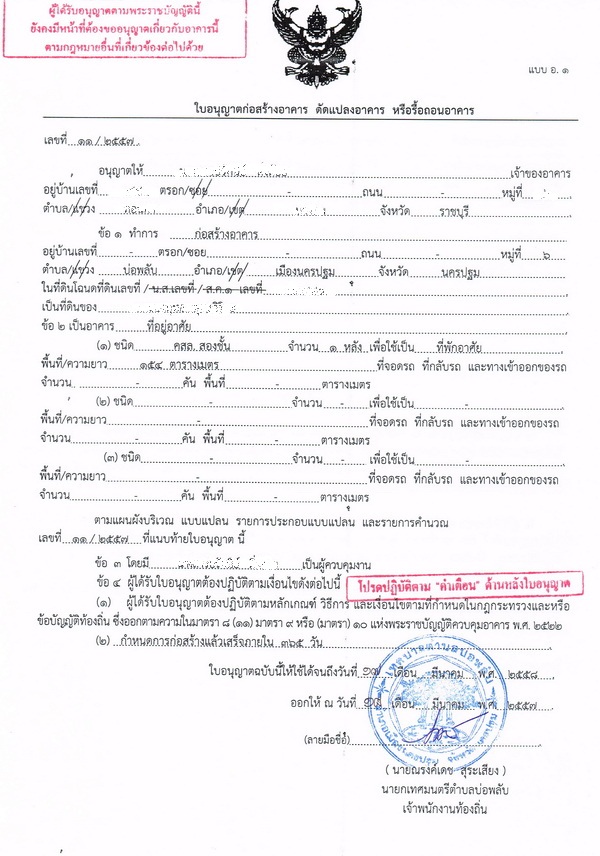 ผู้ได้รับอนุญาตตามพระราชบัญญัตินี้
ยังคงมีหน้าที่ต้องขออนุญาตเกี่ยวกับอาคารนี้
ตามกฎหมายอื่นที่เกี่ยวข้องต่อไปด้วย
แบบ อ. ๑
ใบอนุญาตก่อสร้างอาคาร ดัดแปลงอาคาร หรือรื้อถอนอาคาร
เลขที่ ๑๑ / ๒๕๕๗
อนุญาตให้ เจ้าของอาคาร
อยู่บ้านเลขที่ ตรอก/ซอย - ถนน - หมู่ที่
ตำบล/แขวง อำเภอ/เขต จังหวัด ราชบุรี
ข้อ ๑ ทำการ ก่อสร้างอาคาร
อยู่บ้านเลขที่ - ตรอก/ซอย - ถนน - หมู่ที่ ๖
ตำบล/แขวง บ่อพลับ อำเภอ/เขต เมืองนครปฐม จังหวัด นครปฐม
ในที่ดินโฉนดที่ดินเลขที่ /น.ส.เลขที่ /ส.ค.๑ เลขที่
เป็นที่ดินของ
ข้อ ๒ เป็นอาคาร ที่อยู่อาศัย
(๑) ชนิด คสล. สองชั้น จำนวน ๑ หลัง เพื่อใช้เป็น ที่พักอาศัย
พื้นที่/ความยาว ๑๕๔ ตารางเมตร ที่จอดรถ ที่กลับรถ และทางเข้าออกของรถ
จำนวน - คัน พื้นที่ - ตารางเมตร
(๒) ชนิด - จำนวน - เพื่อใช้เป็น -
พื้นที่/ความยาว - ที่จอดรถ ที่กลับรถ และทางเข้าออกของรถ
จำนวน - คัน พื้นที่ - ตารางเมตร
(๓) ชนิด - จำนวน - เพื่อใช้เป็น -
พื้นที่/ความยาว - ที่จอดรถ ที่กลับรถ และทางเข้าออกของรถ
จำนวน - คัน พื้นที่ - ตารางเมตร
ตามแผนผังบริเวณ แบบแปลน รายการประกอบแบบแปลน และรายการคำนวณ
เลขที่ ๑๑ / ๒๕๕๗ ที่แนบท้ายใบอนุญาต นี้
ข้อ ๓ โดยมี เป็นผู้ควบคุมงาน
ข้อ ๔ ผู้ได้รับใบอนุญาตต้องปฏิบัติตามเงื่อนไขดังต่อไปนี้ โปรดปฏิบัติตาม "คำเตือน" ด้านหลังใบอนุญาต
(๑) ผู้ได้รับใบอนุญาตต้องปฏิบัติตามหลักเกณฑ์ วิธีการ และเงื่อนไขตามที่กำหนดในกฎกระทรวงและหรือ
ข้อบัญญัติท้องถิ่น ซึ่งออกตามความในมาตรา ๘ (๑๑) มาตรา ๙ หรือ (มาตรา) ๑๐ แห่งพระราชบัญญัติควบคุมอาคาร พ.ศ. ๒๕๒๒
(๒) กำหนดการก่อสร้างแล้วเสร็จภายใน ๓๖๕ วัน
ใบอนุญาตฉบับนี้ให้ใช้ได้จนถึงวันที่ เดือน มีนาคม พ.ศ. ๒๕๕๘
ออกให้ ณ วันที่ เดือน มีนาคม พ.ศ. ๒๕๕๗
(ลายมือชื่อ)
( นายณรงค์เดช สุระเสียง )
นายกเทศมนตรีตำบลบ่อพลับ
เจ้าพนักงานท้องถิ่น